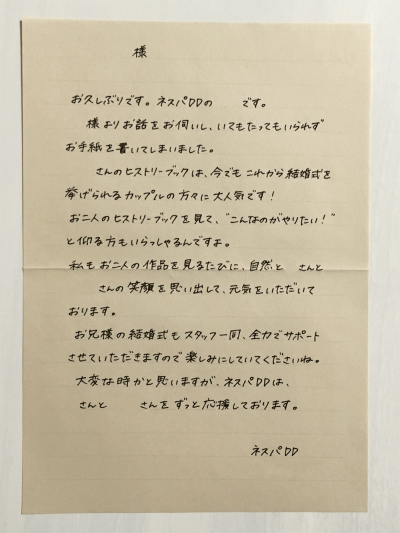 様
お久しぶりです。ネスパDDの　　です。
様よりお話をお伺いし、いてもたってもいられず
お手紙を書いてしまいました。
さんのヒストリーブックは、今でもこれから結婚式を
挙げられるカップルの方々に大人気です！
お二人のヒストリーブックを見て、"こんなのがやりたい！"
と仰る方もいらっしゃるんですよ。
私もお二人の作品を見るたびに、自然と　　さんと
さんの笑顔を思い出して、元気をいただいて
おります。
お兄様の結婚式もスタッフ一同、全力でサポート
させていただきますので楽しみにしていてくださいね。
大変な時かと思いますが、ネスパDDは、
さんと　　さんをずっと応援しております。
ネスパDD